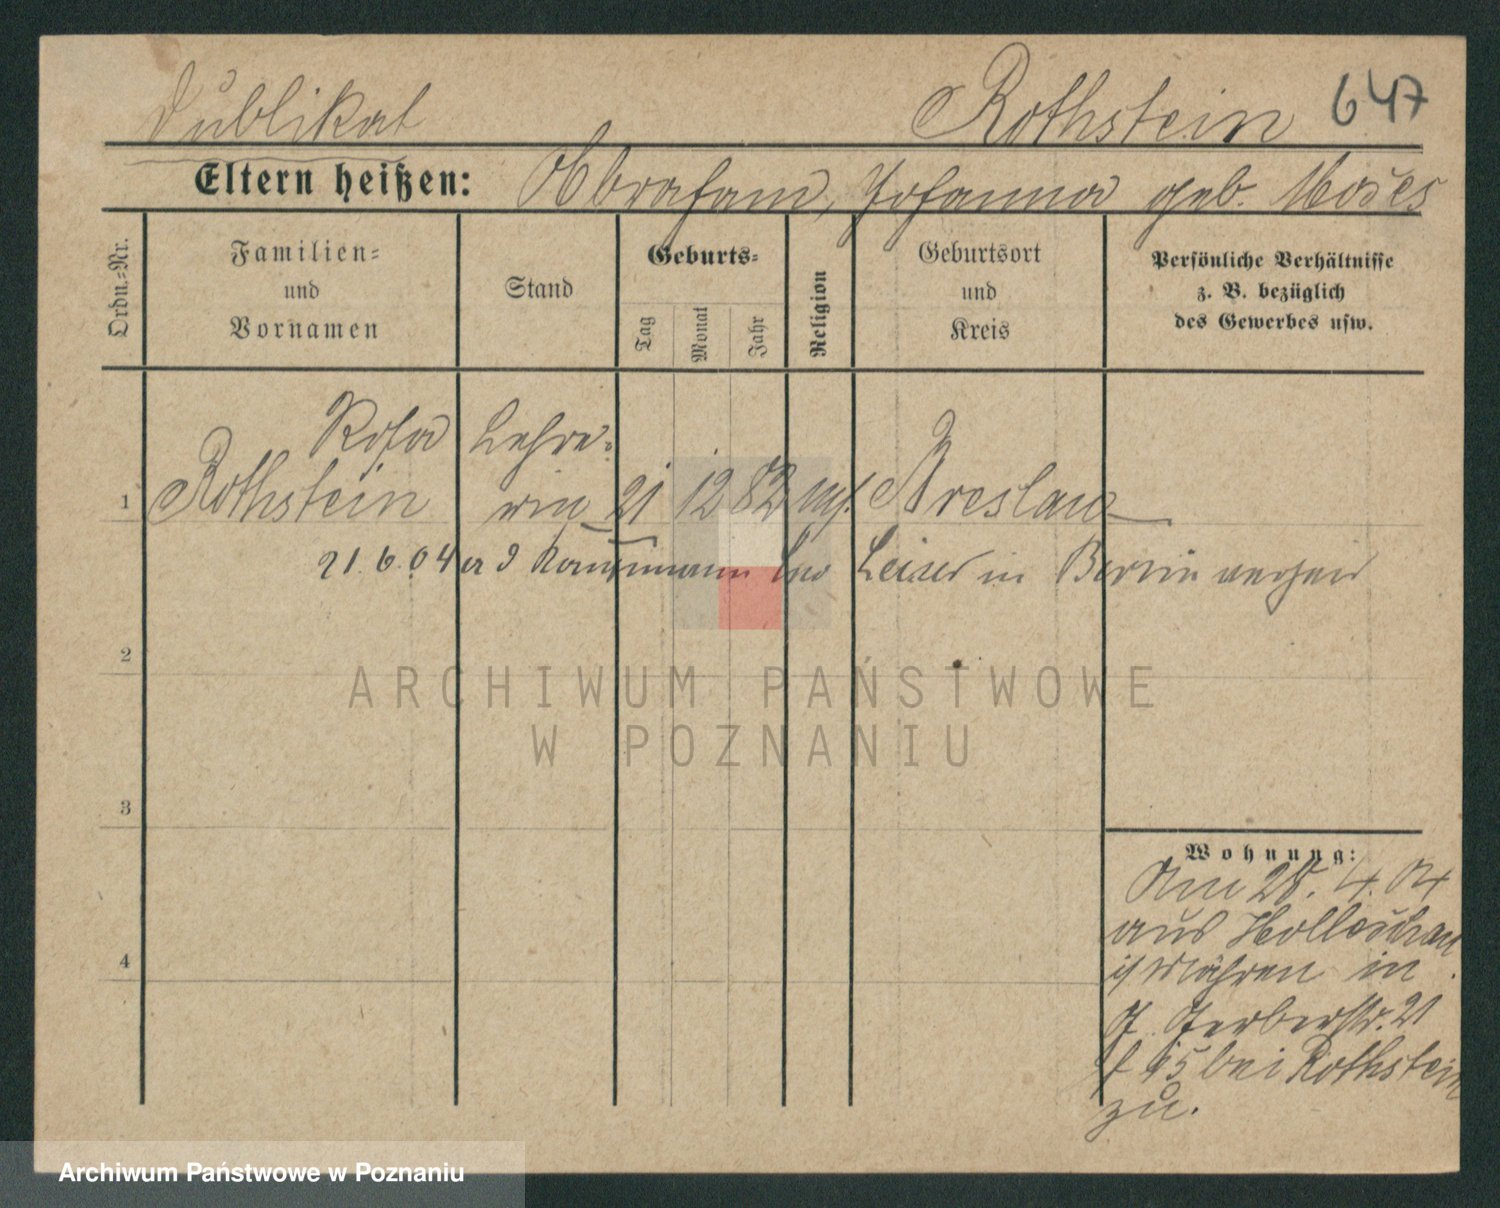 Dublikat
Rothstein 647
Eltern heißen: Abraham, Johanna geb. Moses
Ordn.-Nr.
Familien- und Vornamen
Stand
Geburts-
Tag
Monat
Jahr
Religion
Geburtsort und Kreis
Persönliche Verhältnisse
z. B. bezüglich
des Gewerbes usw.
Rosa Lehre-
1 Rothstein rin 21 12 82 mos. Breslau
21.6.04 Kaufmann Leo Leiser in Berlin
2
3
4
Wohnung:
Am 28. 4. 04
aus Holleschau
Mähren in
Gerberstr. 21
bei Rothstein
zu.
ARCHIWUM PAŃSTWOWE
W POZNANIU
Archiwum Państwowe w Poznaniu